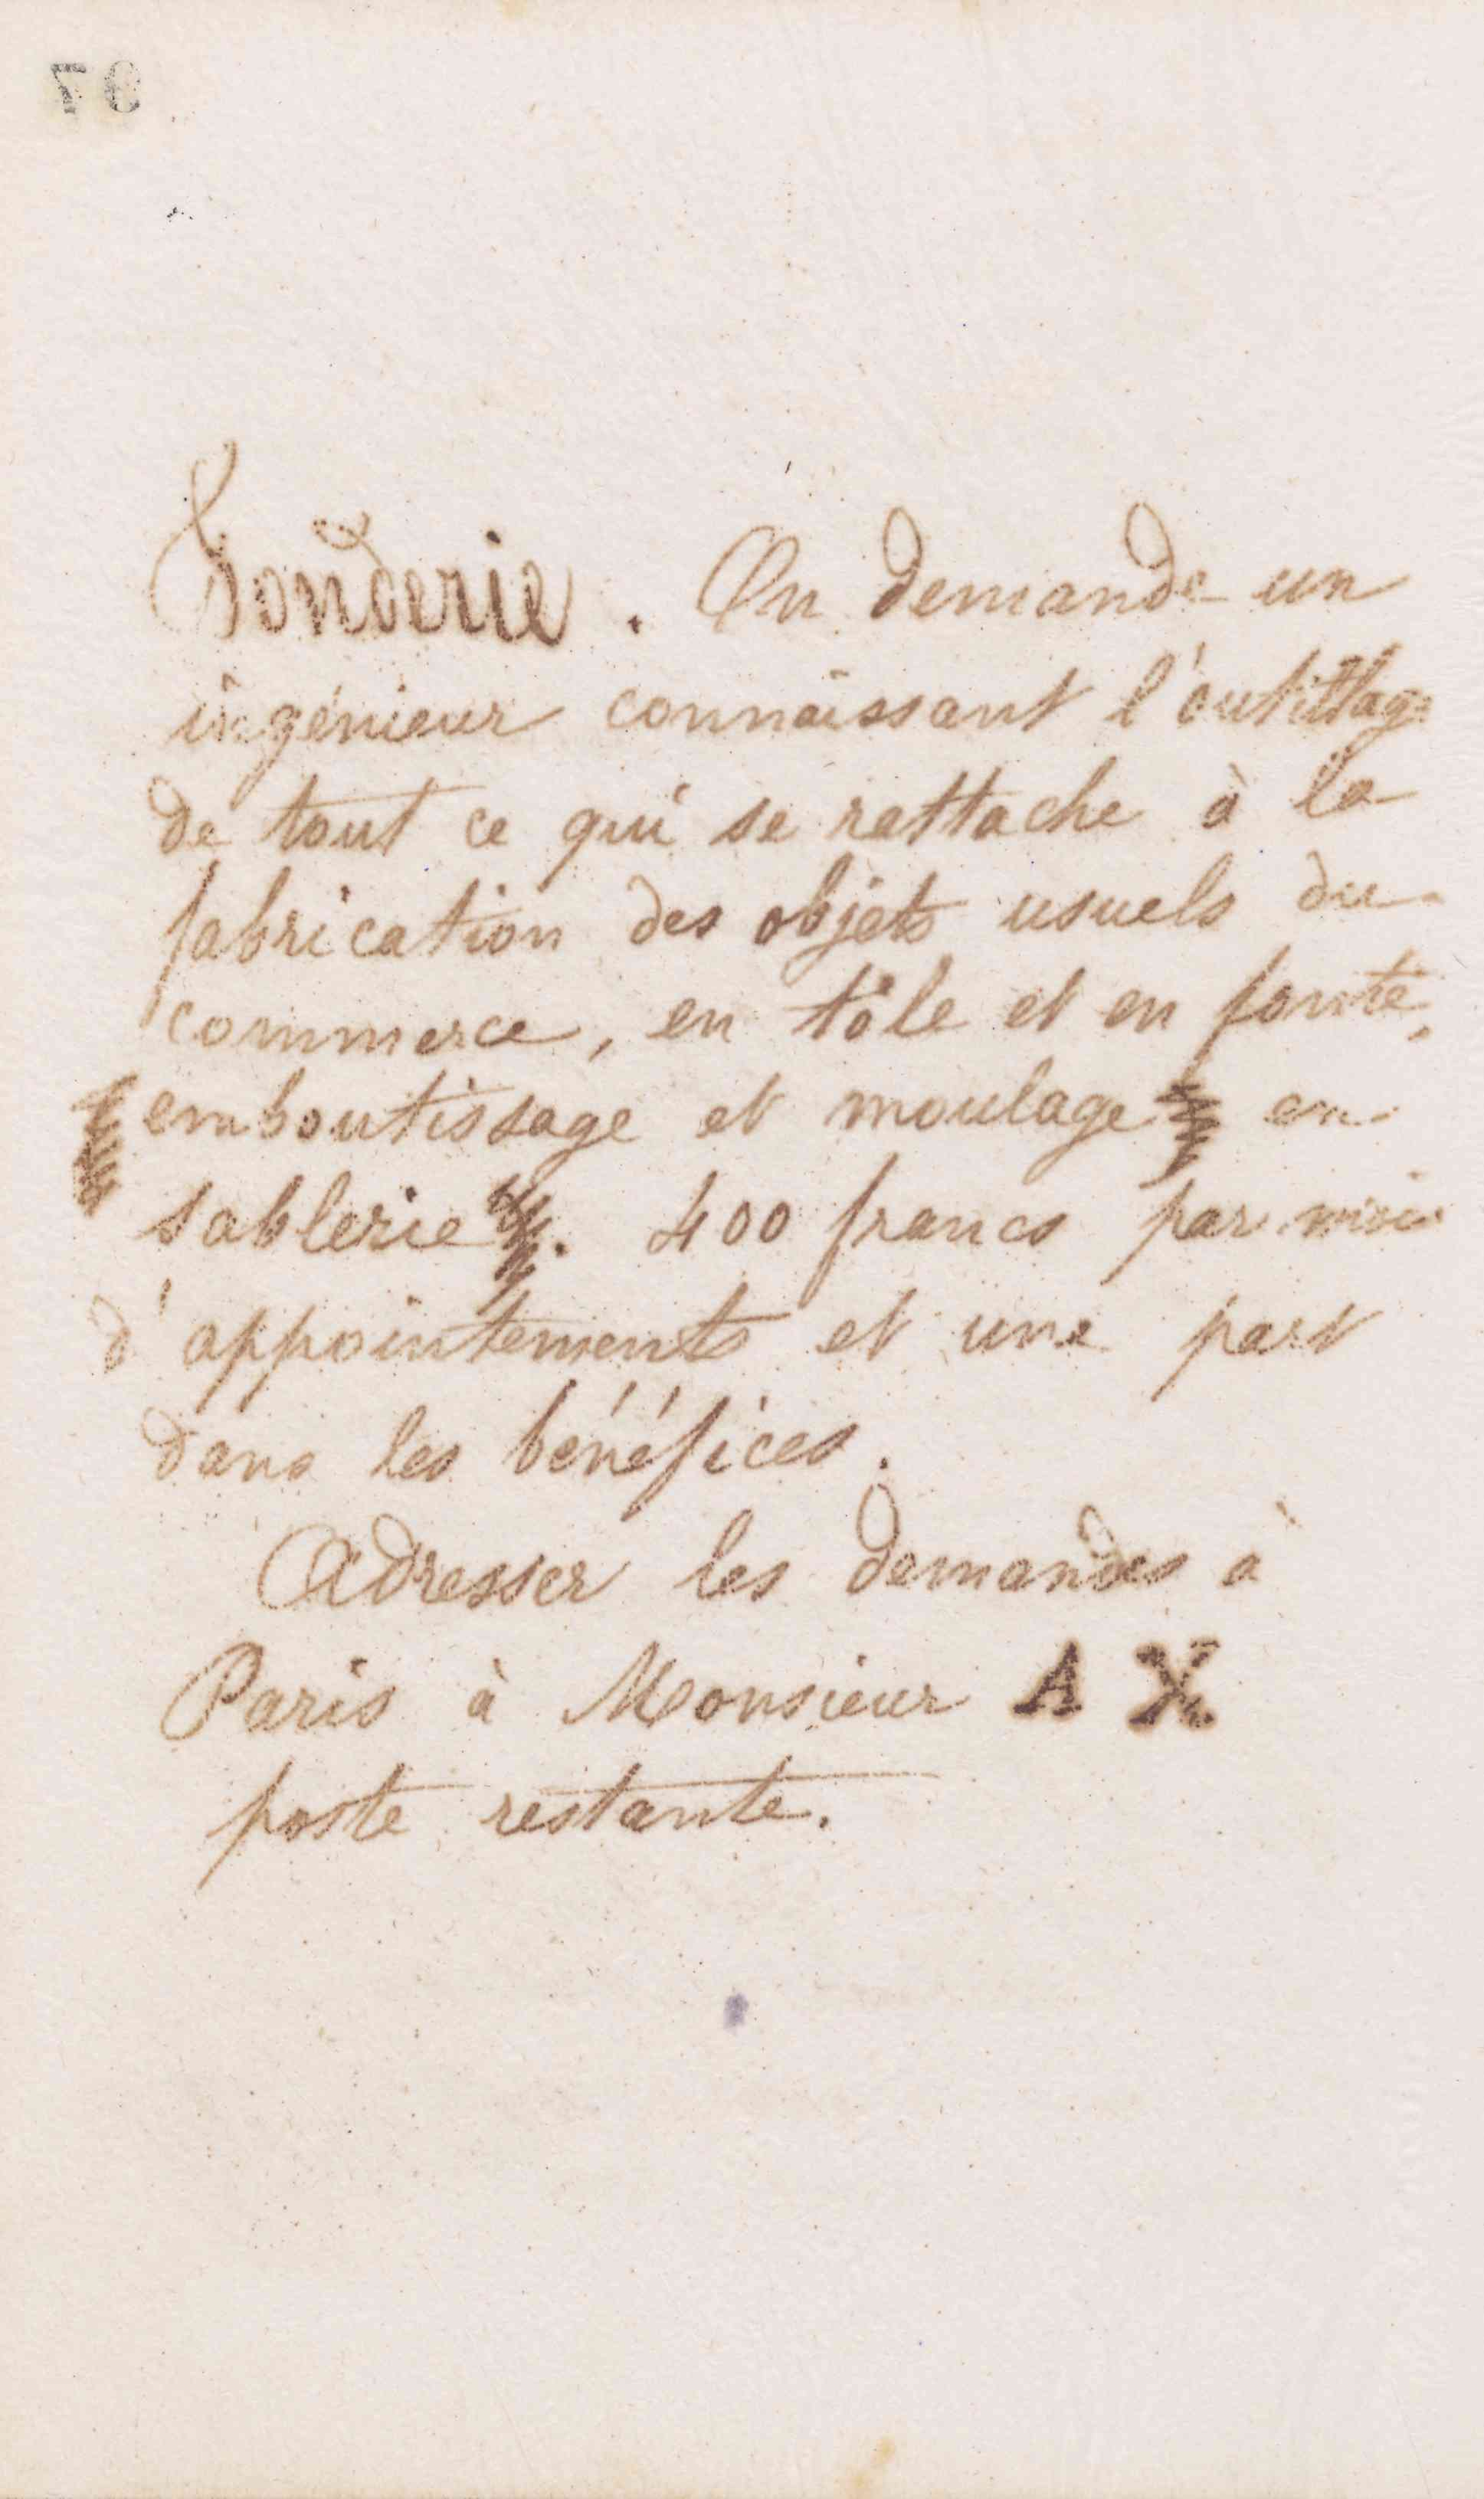 76
Fonderie. On demande un
ingénieur connaissant l'outillage
de tout ce qui se rattache à la
fabrication des objets usuels du
commerce, en tôle et en fonte,
emboutissage et moulage en
sablerie. 400 francs par mois
d'appointements et une part
dans les bénéfices.
Adresser les demandes à
Paris à Monsieur A X
poste restante.